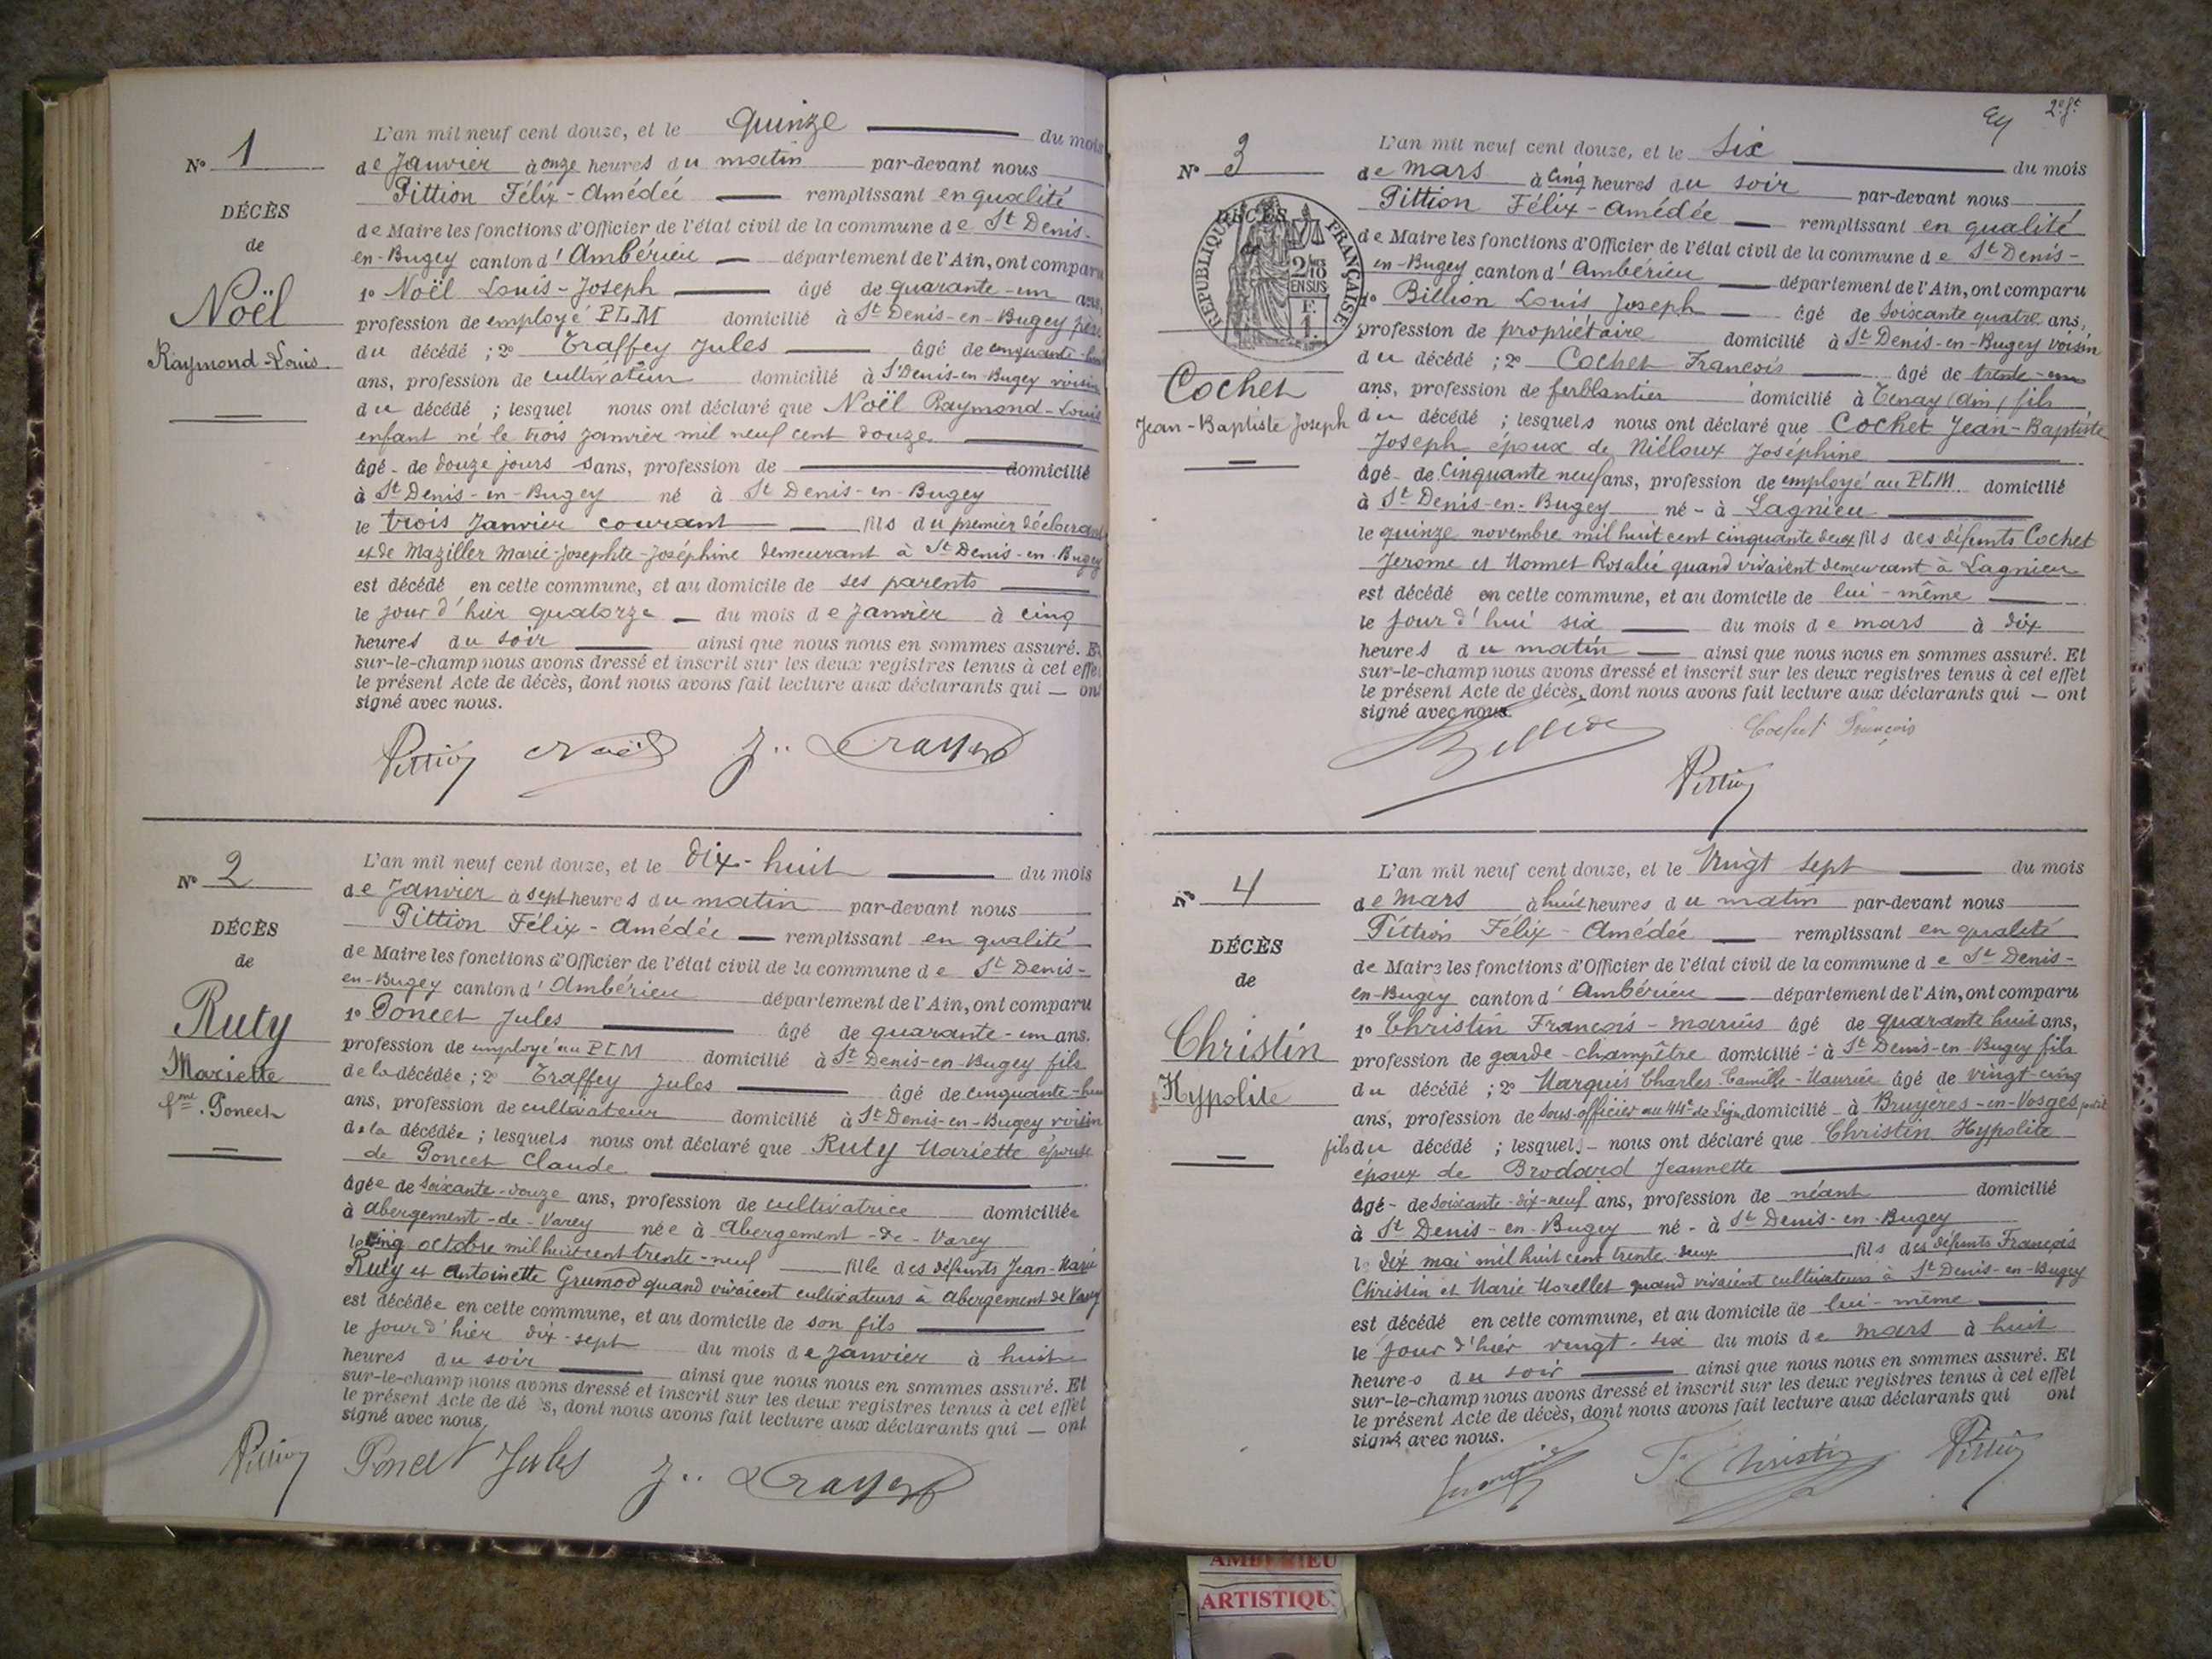 L'an mil neuf cent douze, et le quinze du mois
N° 1
de Janvier à onze heures du matin par-devant nous
Pittion Félix-Amédée remplissant en qualité
DÉCÈS
de Maire les fonctions d'Officier de l'état civil de la commune de St Denis-
de
en-Bugey canton d'Ambérieu département de l'Ain, ont comparu
Noël
1° Noël Louis-Joseph âgé de quarante-un ans,
profession de employé PLM domicilié à St Denis-en-Bugey père
Raymond-Louis
du décédé ; 2° Traffey Jules âgé de cinquante-huit
ans, profession de cultivateur domicilié à St Denis-en-Bugey voisin
du décédé ; lesquel nous ont déclaré que Noël Raymond-Louis
enfant né le trois janvier mil neuf cent douze
âgé - de douze jours sans, profession de domicilié
à St Denis-en-Bugey né à St Denis-en-Bugey
le trois Janvier courant fils du premier déclarant
et de Maziller Marie-Josephte-Joséphine demeurant à St Denis-en-Bugey
est décédé en cette commune, et au domicile de ses parents
le jour d'hier quatorze du mois de Janvier à cinq
heures du soir ainsi que nous nous en sommes assuré. Et
sur-le-champ nous avons dressé et inscrit sur les deux registres tenus à cet effet
le présent Acte de décès, dont nous avons fait lecture aux déclarants qui — ont
signé avec nous.
Pittion Noël J.. Traffey
L'an mil neuf cent douze, et le dix-huit du mois
N° 2
de Janvier à sept heures du matin par-devant nous
Pittion Félix-Amédée remplissant en qualité
DÉCÈS
de Maire les fonctions d'Officier de l'état civil de la commune de St Denis-
de
en-Bugey canton d'Ambérieu département de l'Ain, ont comparu
Ruty
1° Poncet Jules âgé de quarante-un ans.
profession de employé au PLM domicilié à St Denis-en-Bugey fils
Mariette
de la décédée ; 2° Traffey Jules âgé de cinquante-huit
fme. Poncet
ans, profession de cultivateur domicilié à St Denis-en-Bugey voisin
de la décédée ; lesquels nous ont déclaré que Ruty Mariette épouse
de Poncet Claude
âgée de soixante-douze ans, profession de cultivatrice domiciliée
à abergement-de-Varey née à abergement-de-Varey
le cinq octobre mil huit cent trente-neuf fille des défunts Jean-Marie
Ruty et Antoinette Grumod quand vivaient cultivateurs à abergement de Varey
est décédée en cette commune, et au domicile de son fils
le jour d'hier dix-sept du mois de janvier à huit
heures du soir ainsi que nous nous en sommes assuré. Et
sur-le-champ nous avons dressé et inscrit sur les deux registres tenus à cet effet
le présent Acte de dé s, dont nous avons fait lecture aux déclarants qui — ont
signé avec nous.
Pittion Poncet Jules J.. Traffey
2e ft
L'an mil neuf cent douze, et le six du mois
N° 3
de mars à cinq heures du soir par-devant nous
Pittion Félix-Amédée remplissant en qualité
DÉCÈS
RÉPUBLIQUE FRANÇAISE
2/10 EN SUS
F. 1.
de Maire les fonctions d'Officier de l'état civil de la commune de St Denis-
en-Bugey canton d'Ambérieu département de l'Ain, ont comparu
1° Billion Louis Joseph âgé de soixante quatre ans,
profession de propriétaire domicilié à St Denis-en-Bugey voisin
du décédé ; 2° Cochet François âgé de trente-un
Cochet
ans, profession de ferblantier domicilié à Tenay (ain) fils
Jean-Baptiste Joseph
du décédé ; lesquels nous ont déclaré que Cochet Jean-Baptiste
Joseph époux de Nielloux Joséphine
âgé - de cinquante neuf ans, profession de employé au PLM domicilié
à St Denis-en-Bugey né - à Lagnieu
le quinze novembre mil huit cent cinquante deux fils des défunts Cochet
Jerome et Monnet Rosalie quand vivaient demeurant à Lagnieu
est décédé en cette commune, et au domicile de lui-même
le jour d'hui six du mois de mars à dix
heures du matin ainsi que nous nous en sommes assuré. Et
sur-le-champ nous avons dressé et inscrit sur les deux registres tenus à cet effet
le présent Acte de décès, dont nous avons fait lecture aux déclarants qui — ont
signé avec nous.
Billion Cochet François
Pittion
L'an mil neuf cent douze, et le Vingt sept du mois
N° 4
de mars à huit heures du matin par-devant nous
Pittion Félix-Amédée remplissant en qualité
DÉCÈS
de Maire les fonctions d'Officier de l'état civil de la commune de St Denis-
de
en-Bugey canton d'Ambérieu département de l'Ain, ont comparu
Christin
1° Christin François-Marius âgé de quarante huit ans,
profession de garde-champêtre domicilié - à St Denis-en-Bugey fils
Hypolite
du décédé ; 2° Marquis Charles-Camille-Maurice âgé de vingt-cinq
ans, profession de sous-officier au 44e de Ligne domicilié - à Bruyères-en-Vosges petit
fils du décédé ; lesquel. - nous ont déclaré que Christin Hypolite
époux de Brodard Jeannette
âgé - de soixante-dix-neuf ans, profession de néant domicilié
à St Denis-en-Bugey né - à St Denis-en-Bugey
le dix mai mil huit cent trente-deux fils des défunts François
Christin et Marie Morellet quand vivaient cultivateurs à St Denis-en-Bugey
est décédé en cette commune, et au domicile de lui-même
le jour d'hier vingt-six du mois de mars à huit
heures du soir ainsi que nous nous en sommes assuré. Et
sur-le-champ nous avons dressé et inscrit sur les deux registres tenus à cet effet
le présent Acte de décès, dont nous avons fait lecture aux déclarants qui ont
signé avec nous.
F. Christin Pittion
AMBERIEU
ARTISTIQU